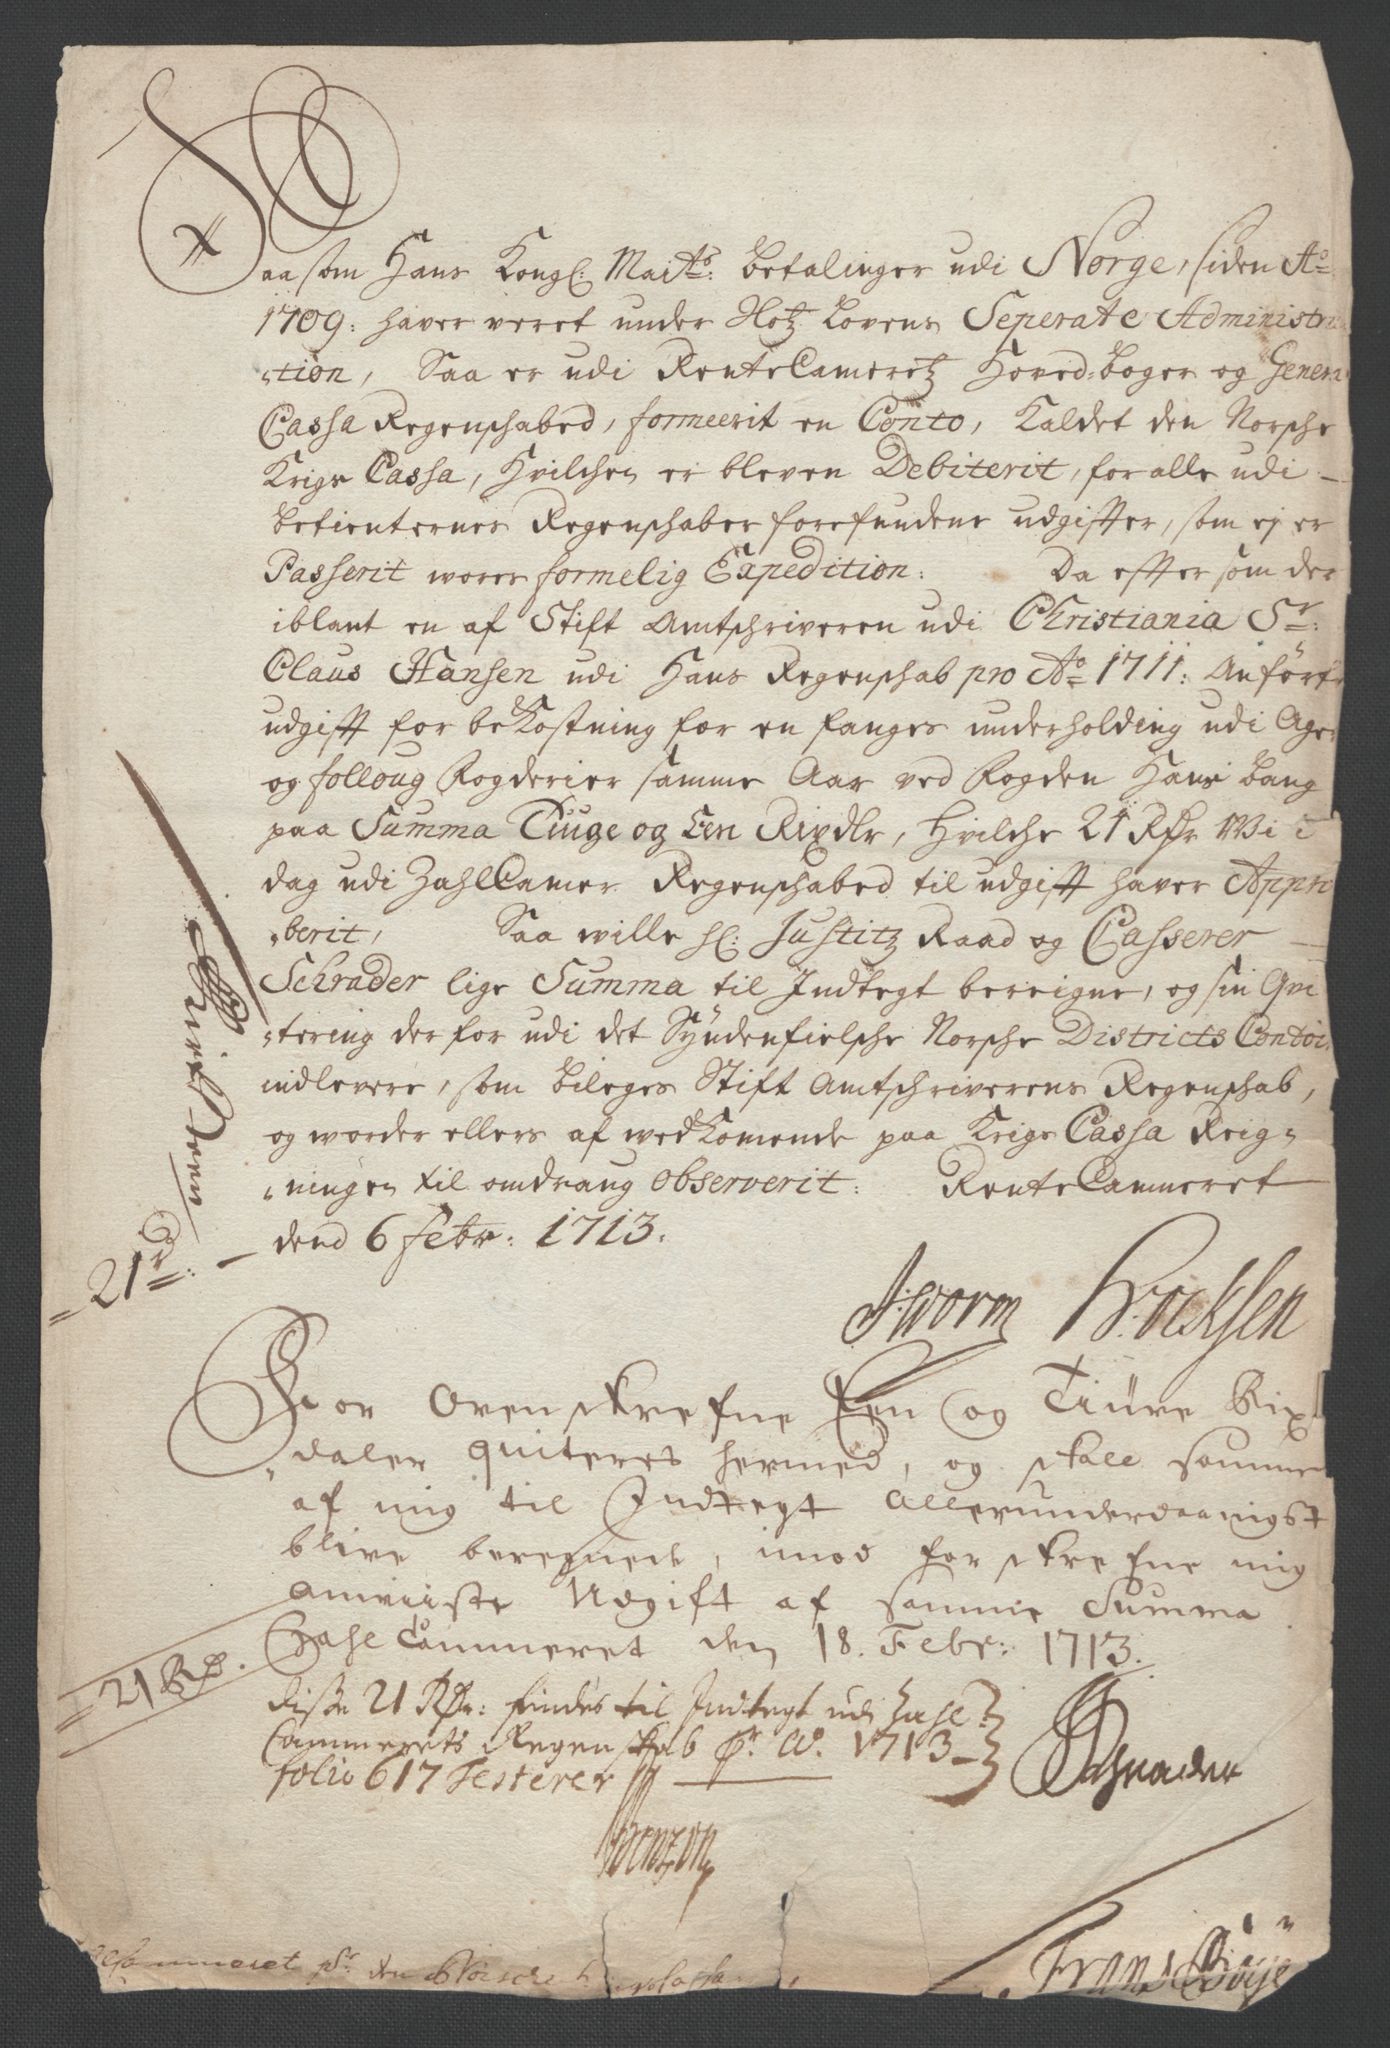 Saasom Hans Kongl: Maits: betalinger udi Norge, siden Ao
1709: haver veret under Hotz Lovens Seperate Administra
-tion, Saa er udi RenteCameretz Hoved-boger og General
Cassa Regenschabed, formeerit en Conto, Kaldet den Norsche
Krigs Cassa, Hvilchen er bleven Debiterit, for alle udi
betienternes Regenschaber forefundene udgiffter, som ej er
Passerit worer formelig Expedition: Da effter som der
iblant en af Stift Amtschriveren udi Christiania Sr:
Claus Hansen udi Hans Regenschab pro Ao 1711: Anførte
udgifft for beKostning for en fanges underholding udi Ager
og folloug Fogderier samme Aar ved Fogden Hans bang
paa Summa Tiuge og Een Rixdlr, Hvilche 21 Rdr Wi i
dag udi ZahlCamer Regenschabed til udgifft haver Appro
-berit, Saa wille hl: Justitz Raad og Casserer
Schrader lige Summa til Indtegt bereigne, og sin Qvi
-tering der for udi det Syndenfielsche Norsche Districts Contoir
indlevere, som bileges Stift Amtschriverens Regenschab,
og worder ellers af wedKomende paa Krigs Cassa Reig-
-ningen til omdraug observerit: RenteCammeret
dend 6 Febr: 1713.
21 rd:
JWorm H. Bocksen
For Ovenskrefne Een og Tiuve Rix
-daler quiteres hermed, og skall samme
af mig til Indtegt allerunderdaanigst
blive beregnede, imod forskrefne mig
anviiste Udgift af samme Summa
Zahl Cammeret den 18. Febr: 1713.
21 Rd.
disse 21 Rdr: findes til Indtegt udi Zahl
Cammerets Regenskab pr. Ao. 1713
folio 617 Testerer
Schrader
Benzon
Cammeret pr. den Norsche
Frans